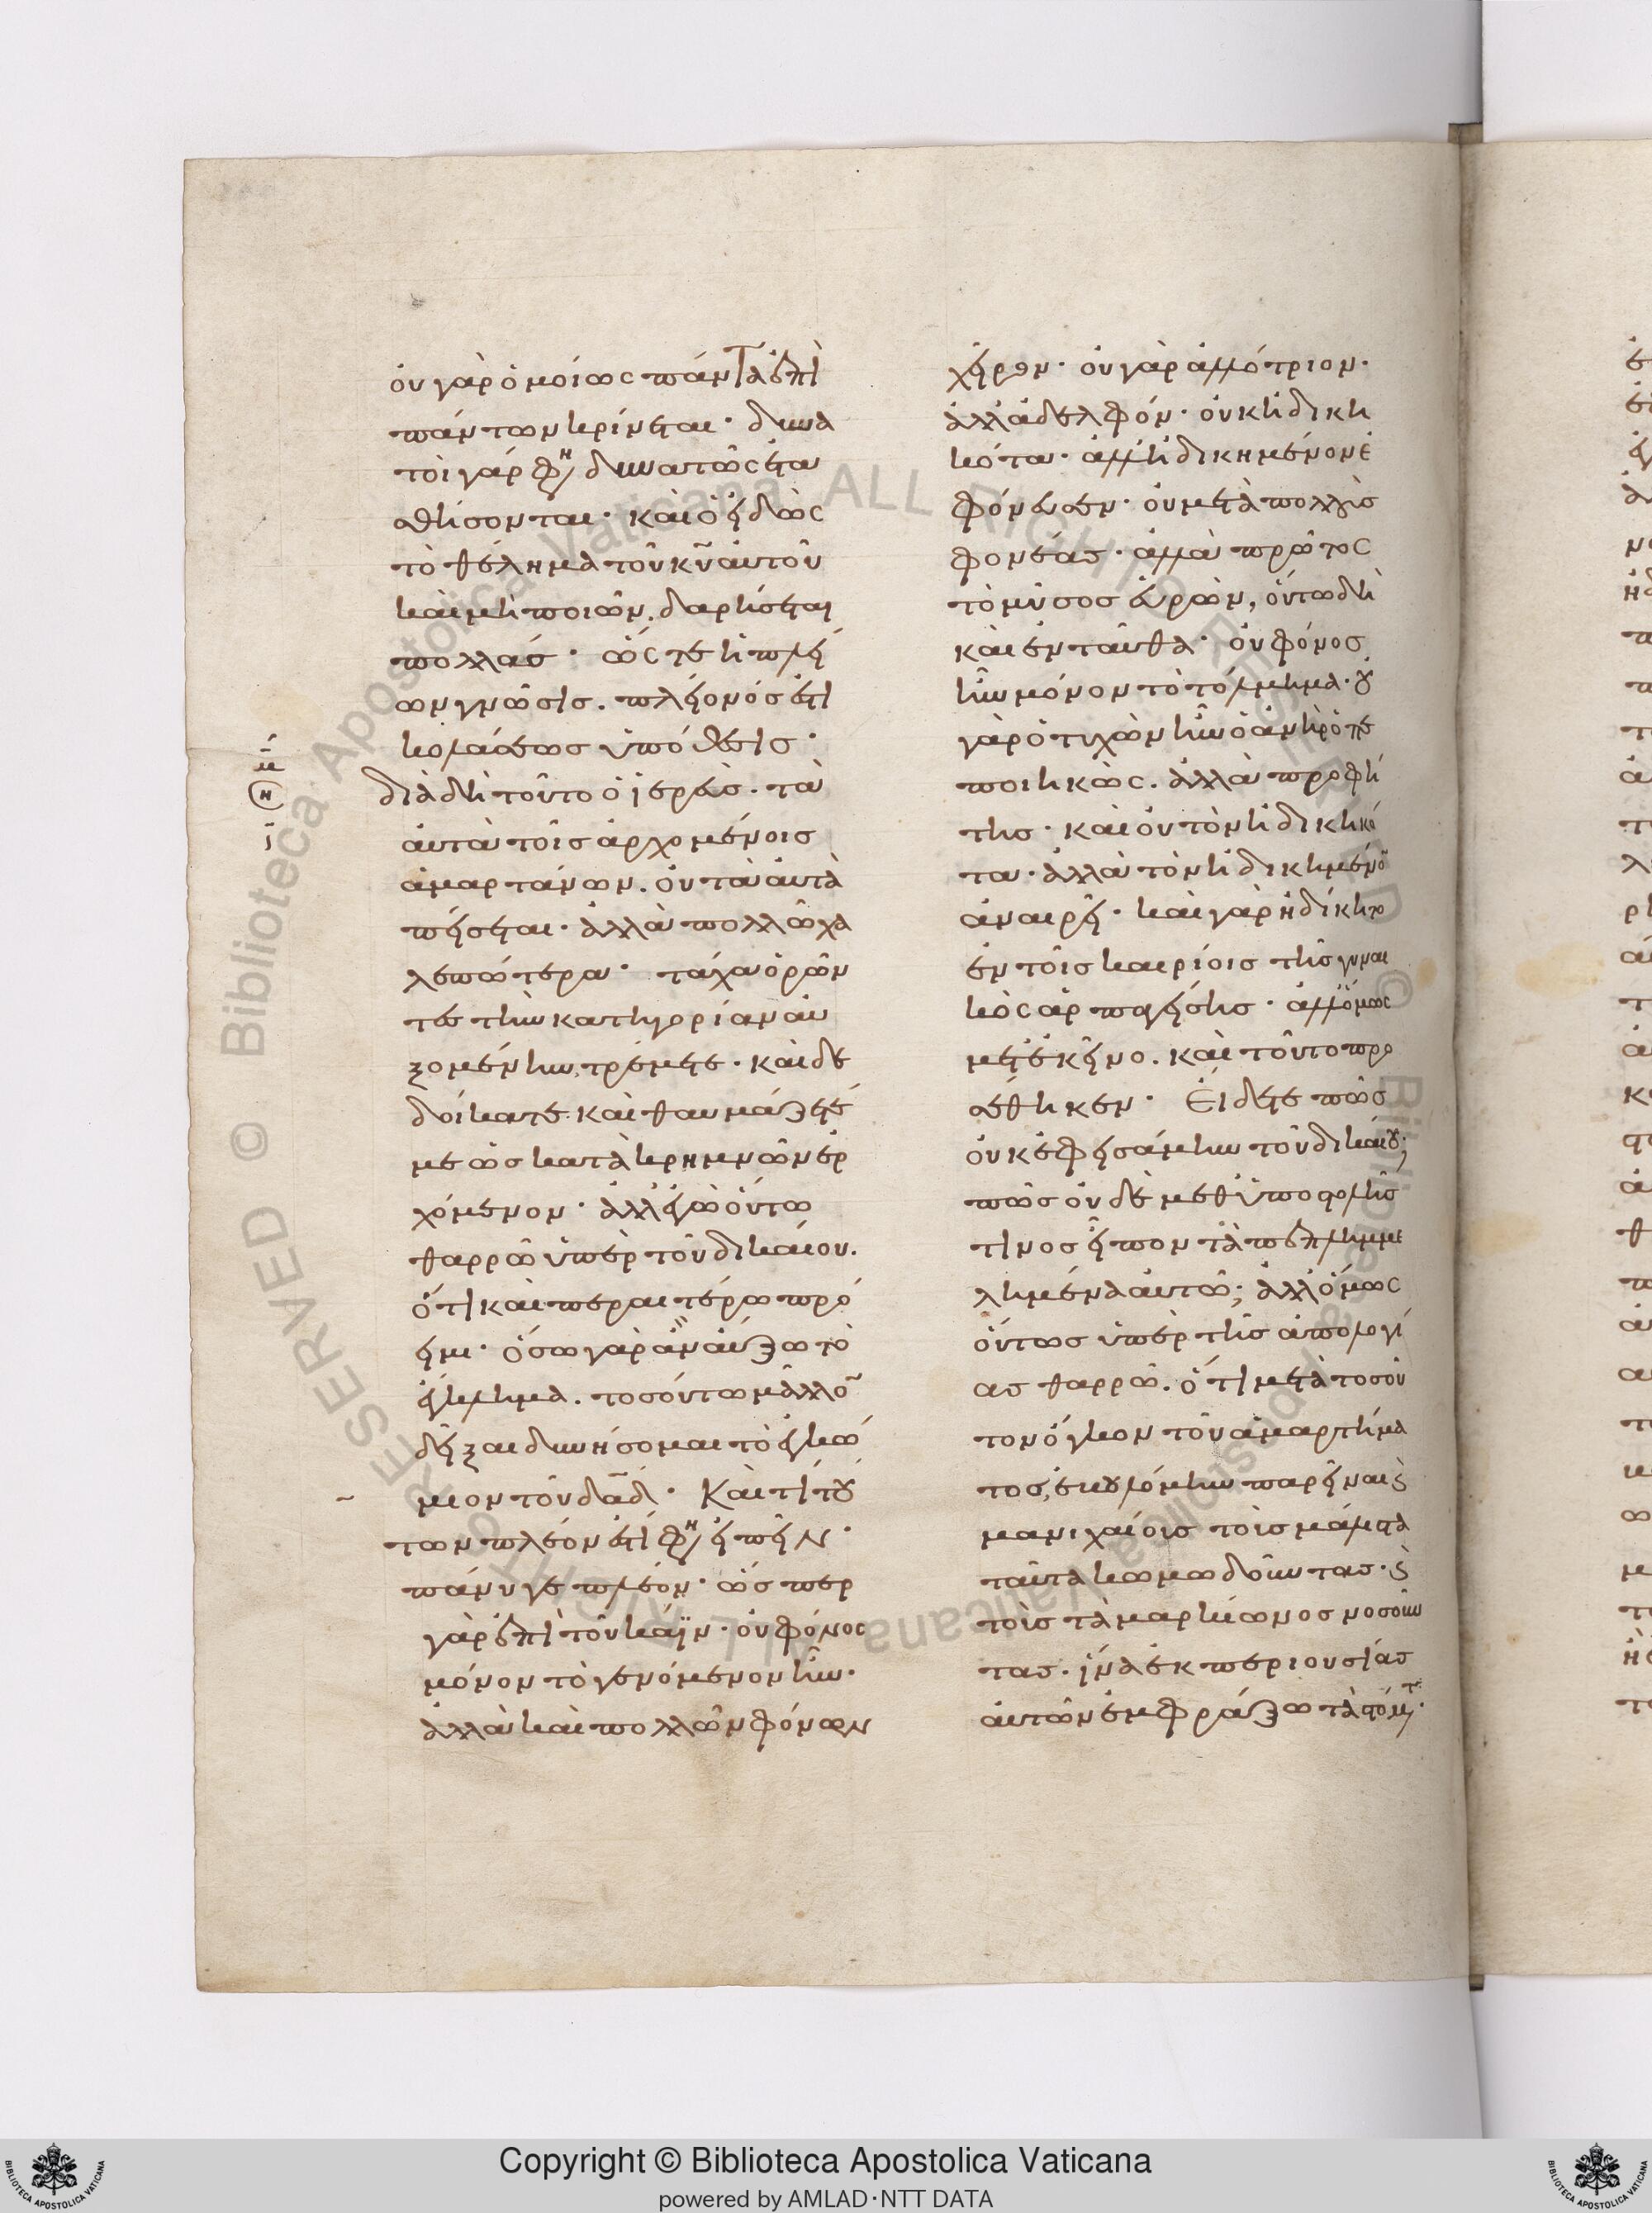 οὐ γὰρ ὁμοίως πάντα ἐπὶ
πάντων κρίνεται· δυνα
τοὶ γάρ φη δυνατῶς ἐτα
σθήσονται· καὶ ὁ εἰδὼς
τὸ θέλημα τοῦ κυ αὐτοῦ
καὶ μὴ ποιῶν. δαρήσεται
πολλάς· ὥστε ἡ πλεί
ων γνῶσις. πλείονός ἐστι
κολάσεως ὑπόθεσις·
διὰ δὴ τοῦτο ὁ ἱερεὺς. τὰ
αὐτὰ τοῖς ἀρχομένοις
ἁμαρτάνων. οὐ τὰ αὐτὰ
πείσεται· ἀλλὰ πολλῶ χα
λεπώτερα· τάχα ὁρῶν
τες τὴν κατηγορίαν αὐ
ξομένην, τρέμετε· καὶ δε
δοίκατε καὶ θαυμάζετέ
με ὡς κατὰ κρημνῶν ἐρ
χόμενον· ἀλλ' ἐγὼ οὕτω
θαρρῶ ὑπὲρ τοῦ δικαίου.
ὅτι καὶ περαιτέρω πρό
ειμι· ὅσω γὰρ ἂν αὔξω τὸ
ἔγκλημα. τοσούτω μᾶλλο
δεῖξαι δυνήσομαι τὸ ἐγκώ
μιον τοῦ δαδ· Καὶ τί τού
των πλέον ἐστὶ φη εἰπεῖν·
πάνυ γε πλέον· ὥσπερ
γὰρ ἐπὶ τοῦ κάϊν· οὐ φόνος
μόνον τὸ γενόμενον ἦν·
ἀλλὰ καὶ πολλῶν φόνων
χεῖρον· οὐ γὰρ ἀλλότριον·
ἀλλ' ἀδελφόν· οὐκ ἠδικη
κότα· ἀλλ' ἠδικημένον ἐ
φόνευσεν· οὐ μετὰ πολλοὺς
φονέας· ἀλλὰ πρῶτος
τὸ μύσος εὑρών, οὕτω δὴ
καὶ ἐνταῦθα· οὐ φόνος
ἦν μόνον τὸ τόλμημα· οὐ
γὰρ ὁ τυχὼν ἦν ὁ ἀνὴρ ὅ τε
ποιηκὼς. ἀλλὰ προφή
της· καὶ οὐ τὸν ἠδικηκό
τα· ἀλλὰ τὸν ἠδικημένο
ἀναιρεῖ· καὶ γὰρ ἠδίκητο
ἐν τοῖς καιρίοις τῆς γυναι
κὸς ἁρπαγείσης· ἀλλ' ὅμως
μετ' ἐκεῖνο. καὶ τοῦτο προ
σέθηκεν· Εἴδετε πῶς
οὐκ ἐφεισάμην τοῦ δικαίου;
πῶς οὐδὲ μεθ' ὑποστολῆς
τινος εἶπον τὰ πεπλημμε
λημένα αὐτῶ; ἀλλ' ὅμως
οὕτως ὑπὲρ τῆς ἀπολογί
ας θαρρῶ. ὅτι μετὰ τοσοῦ
τον ὄγκον τοῦ ἁμαρτήμα
τος, ἐβουλόμην παρεῖναι καὶ
μανιχαίοις τοῖς μάλιστα
ταῦτα κωμωδοῦντας· καὶ
τοῖς τὰ μαρκίωνος νοσοῦν
τας. ἵνα ἐκ περιουσίας
αὐτῶν ἐμφράξω τὰ στόματ·